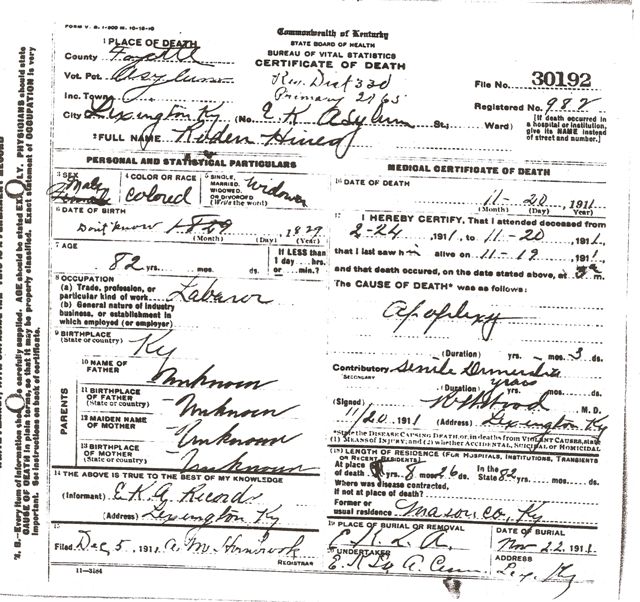 FORM V. S. 1-
Commonwealth of Kentucky
STATE BOARD OF HEALTH
BUREAU OF VITAL STATISTICS
CERTIFICATE OF DEATH
1 PLACE OF DEATH
County Fayette
Vot. Pct. Asylum
Reg Dist 330
File No. 30192
Inc. Town
Primary 2165
Registered No. 982
City Lexington Ky (No. E K Asylum St.; Ward)
[If death occurred in a hospital or institution, give its NAME instead of street and number.]
2 FULL NAME
PERSONAL AND STATISTICAL PARTICULARS
3 SEX Male Female
4 COLOR OR RACE colored
5 SINGLE, MARRIED, WIDOWED, OR DIVORCED (Write the word) Widower
6 DATE OF BIRTH
Don't know 1829
(Month) (Day) (Year)
7 AGE
82 yrs. mos. ds.
If LESS than 1 day hrs. or min.?
8 OCCUPATION
(a) Trade, profession, or particular kind of work Laborer
(b) General nature of industry business, or establishment in which employed (or employer)
9 BIRTHPLACE (State or country) Ky
PARENTS
10 NAME OF FATHER Unknown
11 BIRTHPLACE OF FATHER (State or country) Unknown
12 MAIDEN NAME OF MOTHER Unknown
13 BIRTHPLACE OF MOTHER (State or country) Unknown
14 THE ABOVE IS TRUE TO THE BEST OF MY KNOWLEDGE
(Informant) E K A Records
(Address) Lexington Ky
15
Filed Dec 5, 1911
REGISTRAR
11-3184
MEDICAL CERTIFICATE OF DEATH
16 DATE OF DEATH
11-20, 1911
(Month) (Day) (Year)
17 I HEREBY CERTIFY, That I attended deceased from
2-24, 1911, to 11-20, 1911,
that I last saw him alive on 11-19, 1911,
and that death occured, on the date stated above, at m.
The CAUSE OF DEATH* was as follows:
Apoplexy
(Duration) yrs. mos. 3 ds.
Contributory Senile
SECONDARY
(Duration) years mos. ds.
(Signed) M. D.
11/20, 1911 (Address) Lexington Ky
*State the DISEASE CAUSING DEATH, or, in deaths from VIOLENT CAUSES, state (1) MEANS OF INJURY; and (2) whether ACCIDENTAL, SUICIDAL or HOMICIDAL
18 LENGTH OF RESIDENCE (FOR HOSPITALS, INSTITUTIONS, TRANSIENTS OR RECENT RESIDENTS)
At place of death yrs. 8 mos. 26 ds. In the State 82
Where was disease contracted, if not at place of death?
Former or usual residence Mason Co, Ky
19 PLACE OF BURIAL OR REMOVAL
E. K. L. A.
DATE OF BURIAL
Nov 22, 1911
20 UNDERTAKER
ADDRESS
Lex. Ky
N. B.—Every item of information should be carefully supplied. AGE should be stated EXACTLY. PHYSICIANS should state
CAUSE OF DEATH in plain terms, so that it may be properly classified. Exact statement of OCCUPATION is very
important. See instructions on back of certificate.